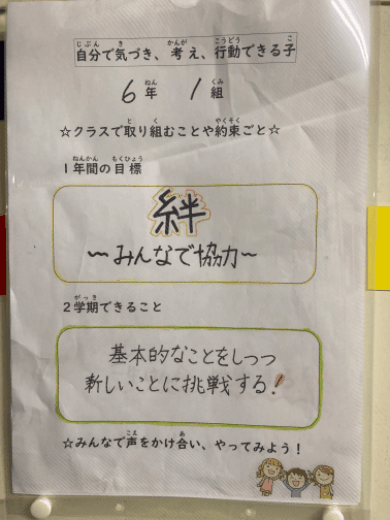 自分で気づき、考え、行動できる子
6年 1組
☆クラスで取り組むことや約束ごと☆
1年間の目標
絆
〜みんなで協力〜
2学期できること
基本的なことをしつつ
新しいことに挑戦する!
☆みんなで声をかけ合い、やってみよう!